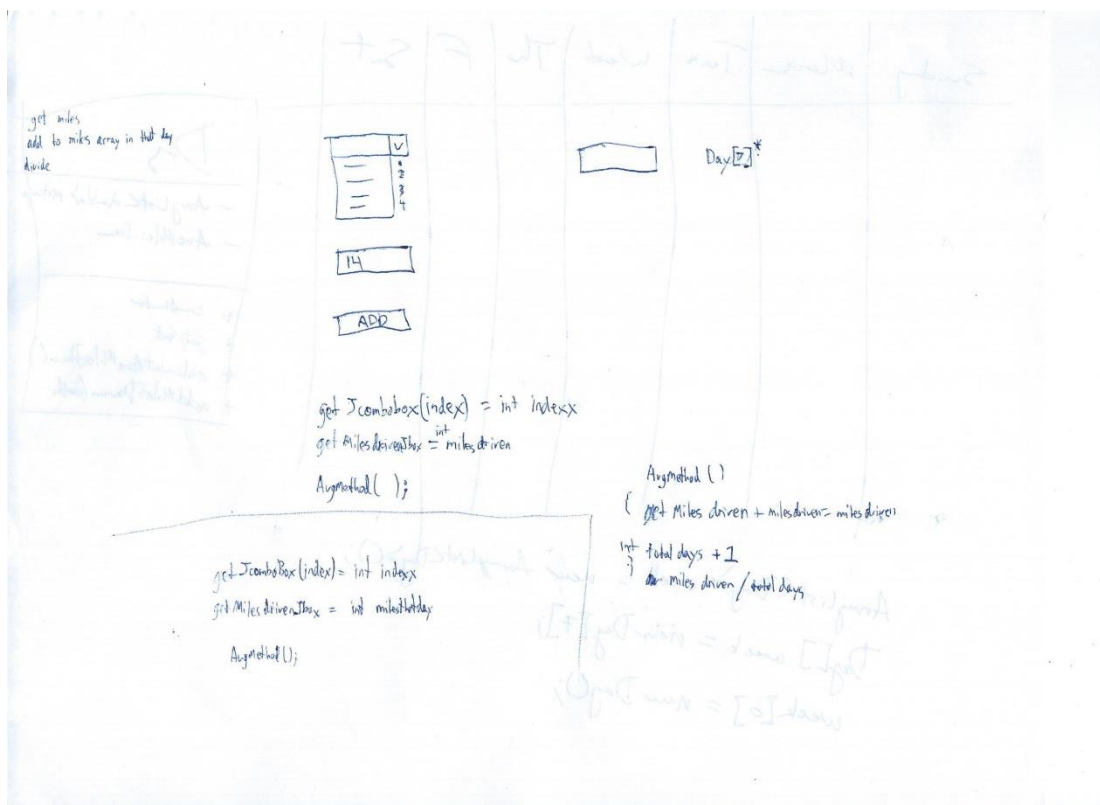 get miles
add to miles array in that day
divide
V
1
2
3
4
14
ADD
Day[7]*
get Jcombobox(index) = int indexx
get MilesdrivenJbox = int milesdriven
Avgmethod( );
Avgmethod ()
{ get Miles driven + milesdriven = milesdriven
int total days + 1
} miles driven / total days
get JComboBox(index) = int indexx
get MilesdrivenJbox = int milesthatday
Avgmethod();
Sunday Mon Tue Wed Th F Sat
Day
+ get set
Day[] week = new Day[7];
week[0] = new Day();